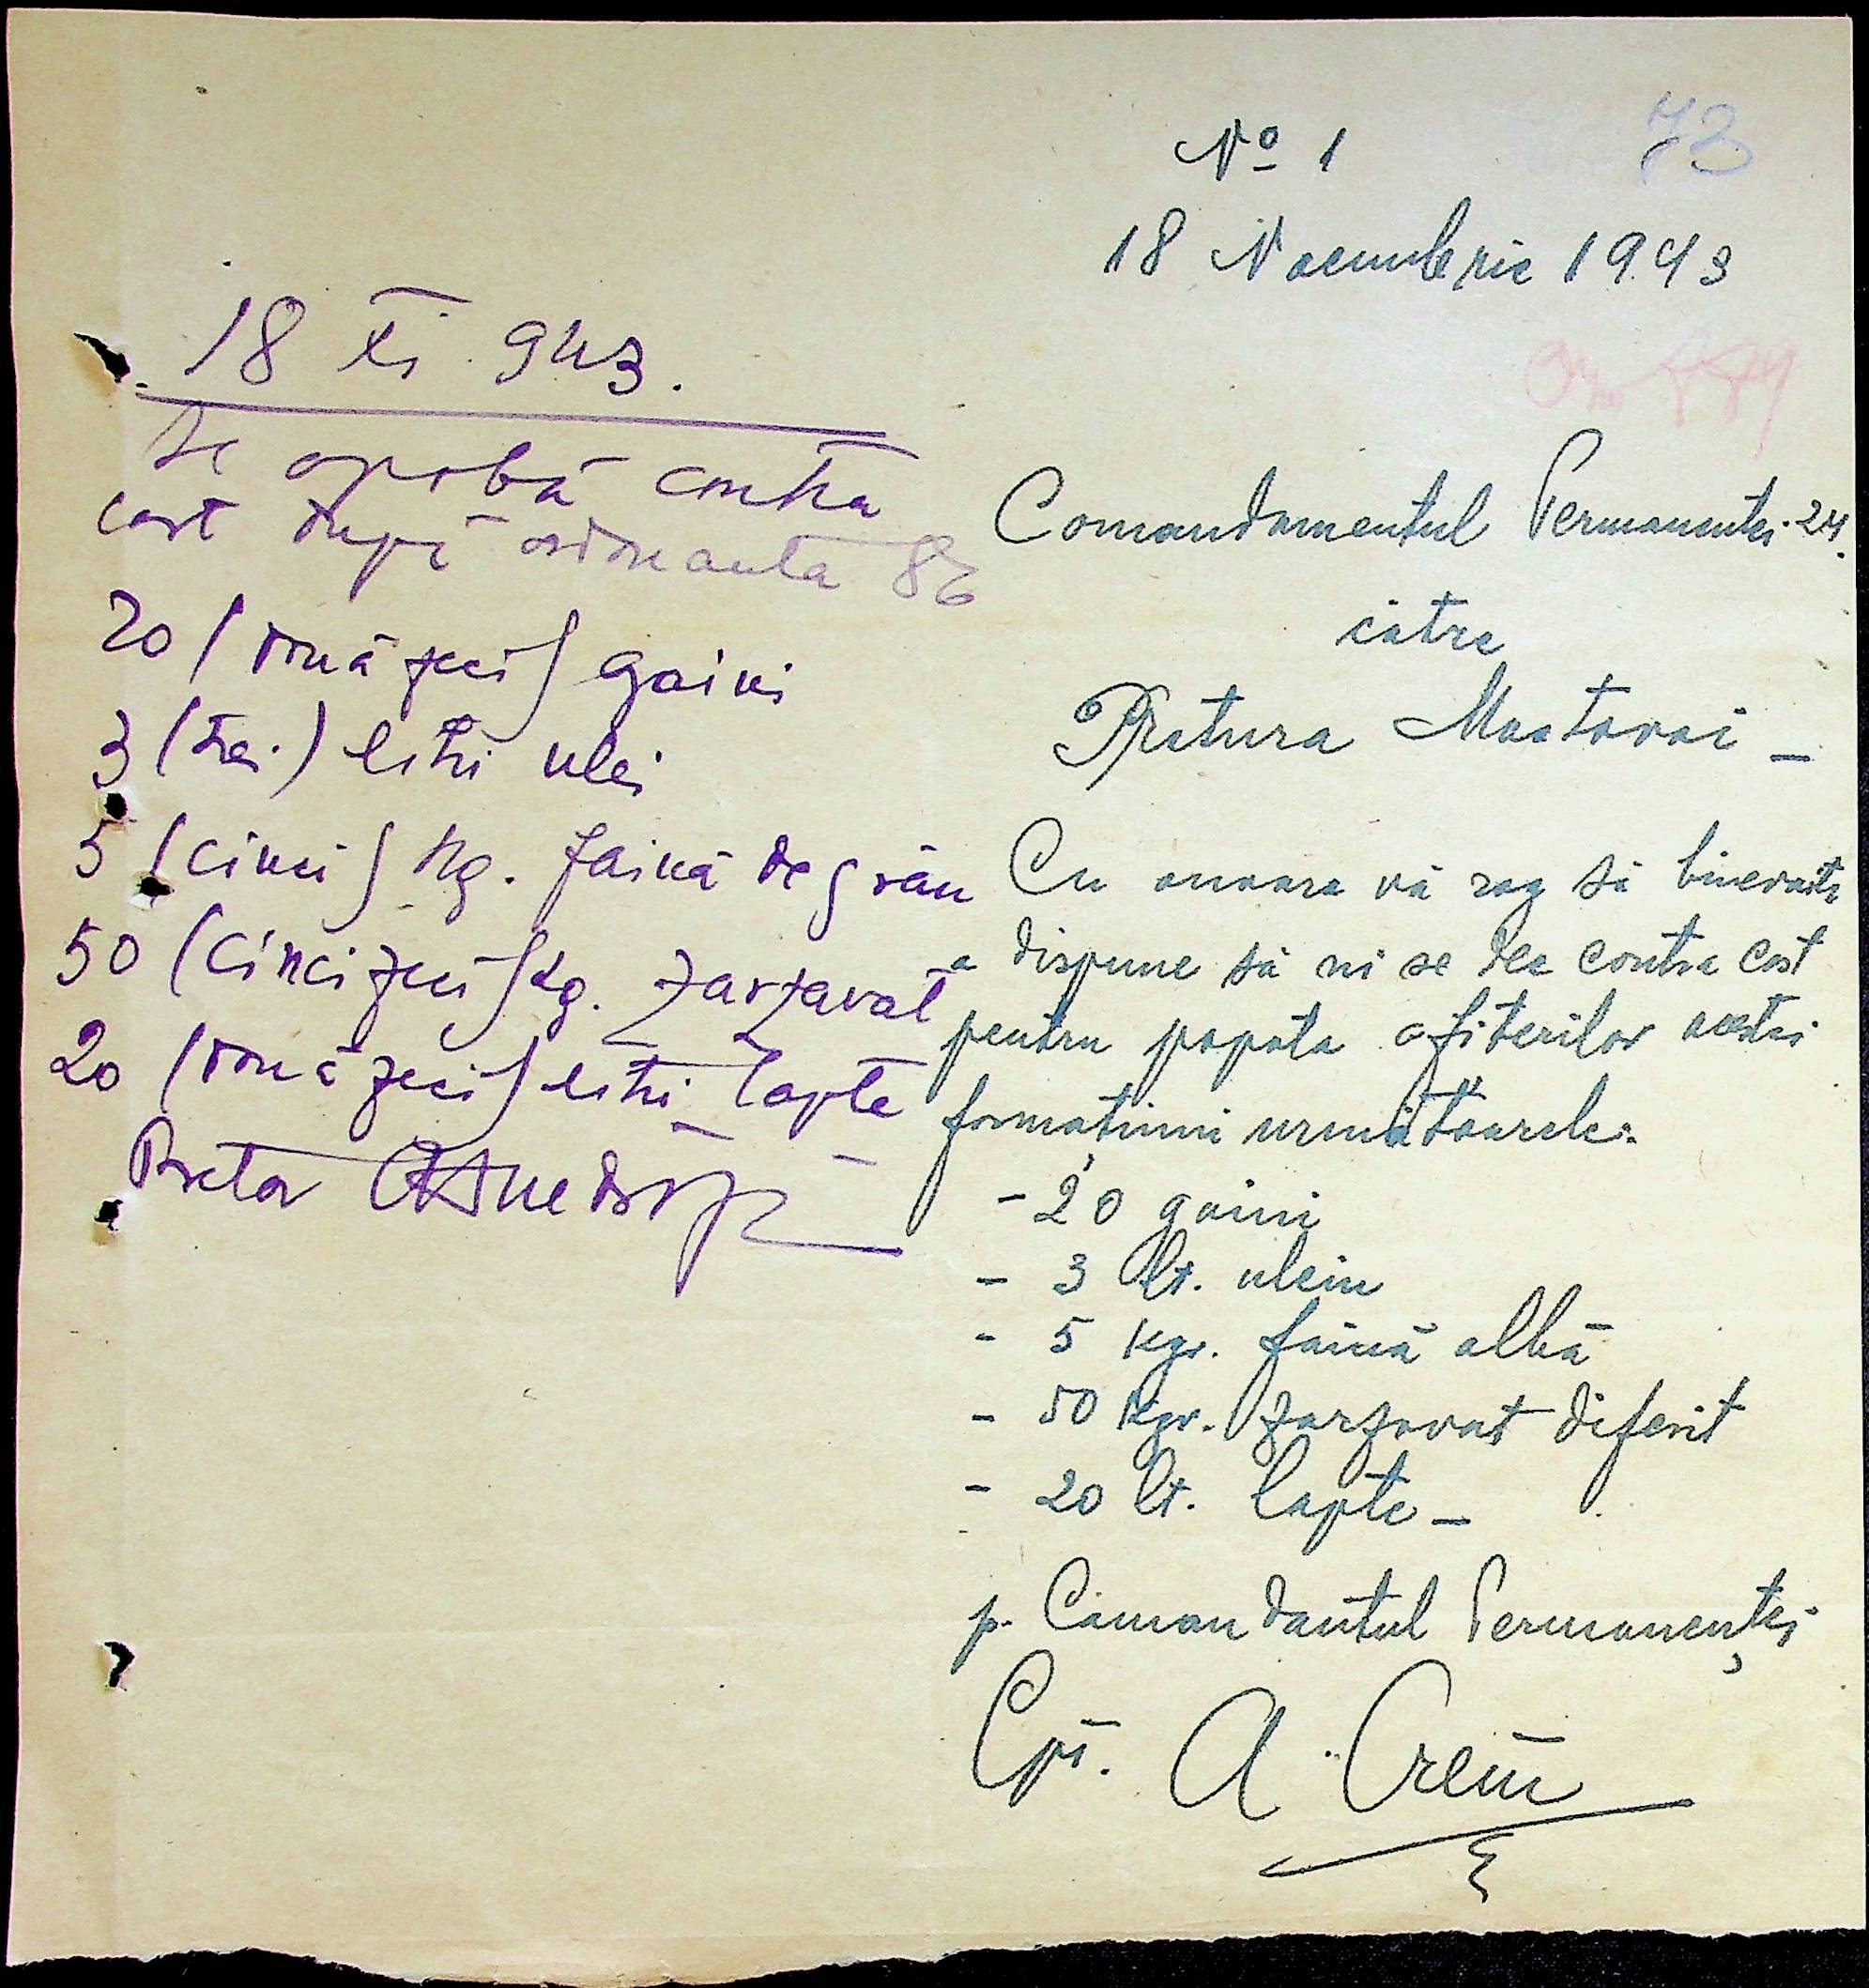 No 1
73
18 Noembrie 1943
Comandamentul Permanentei 24.
către
Pretura Mostovoi –
Cu onoare vă rog să binevoiti
a dispune să ni se dee contra cost
pentru popota ofiterilor acestei
formațiuni următoarele:
- 20 gaini
- 3 lt. uleiu
- 5 kgr. făină albă
- 50 kgr. zarzavat diferit
- 20 lt. lapte –
p. Comandantul Permanenței
Cpt. A. Crețu
18 XI 943.
Se aprobă contra
cost după ordonanta 86
20 (două zeci) gaini
3 (trei) litri ulei
5 (cinci) kg. faină de grâu
50 (cinci zeci) kg. zarzavat
20 (două zeci) litri lapte
Pretor